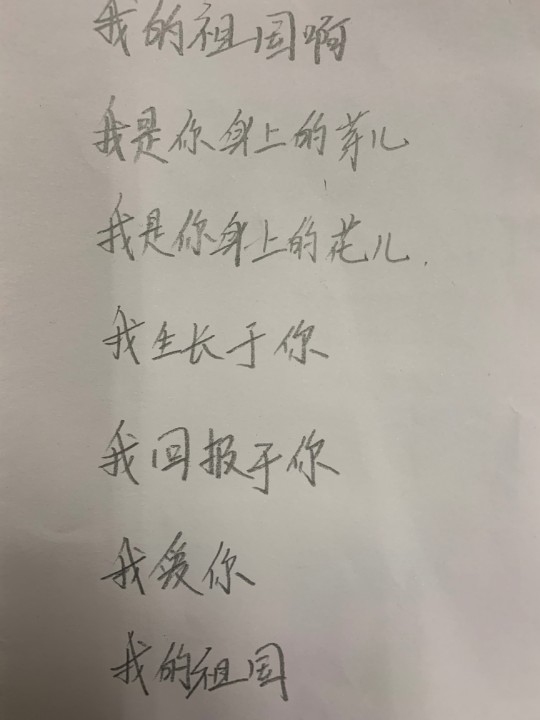 我的祖国啊
我是你身上的芽儿
我是你身上的花儿.
我生长于你
我回报于你
我爱你
我的祖国